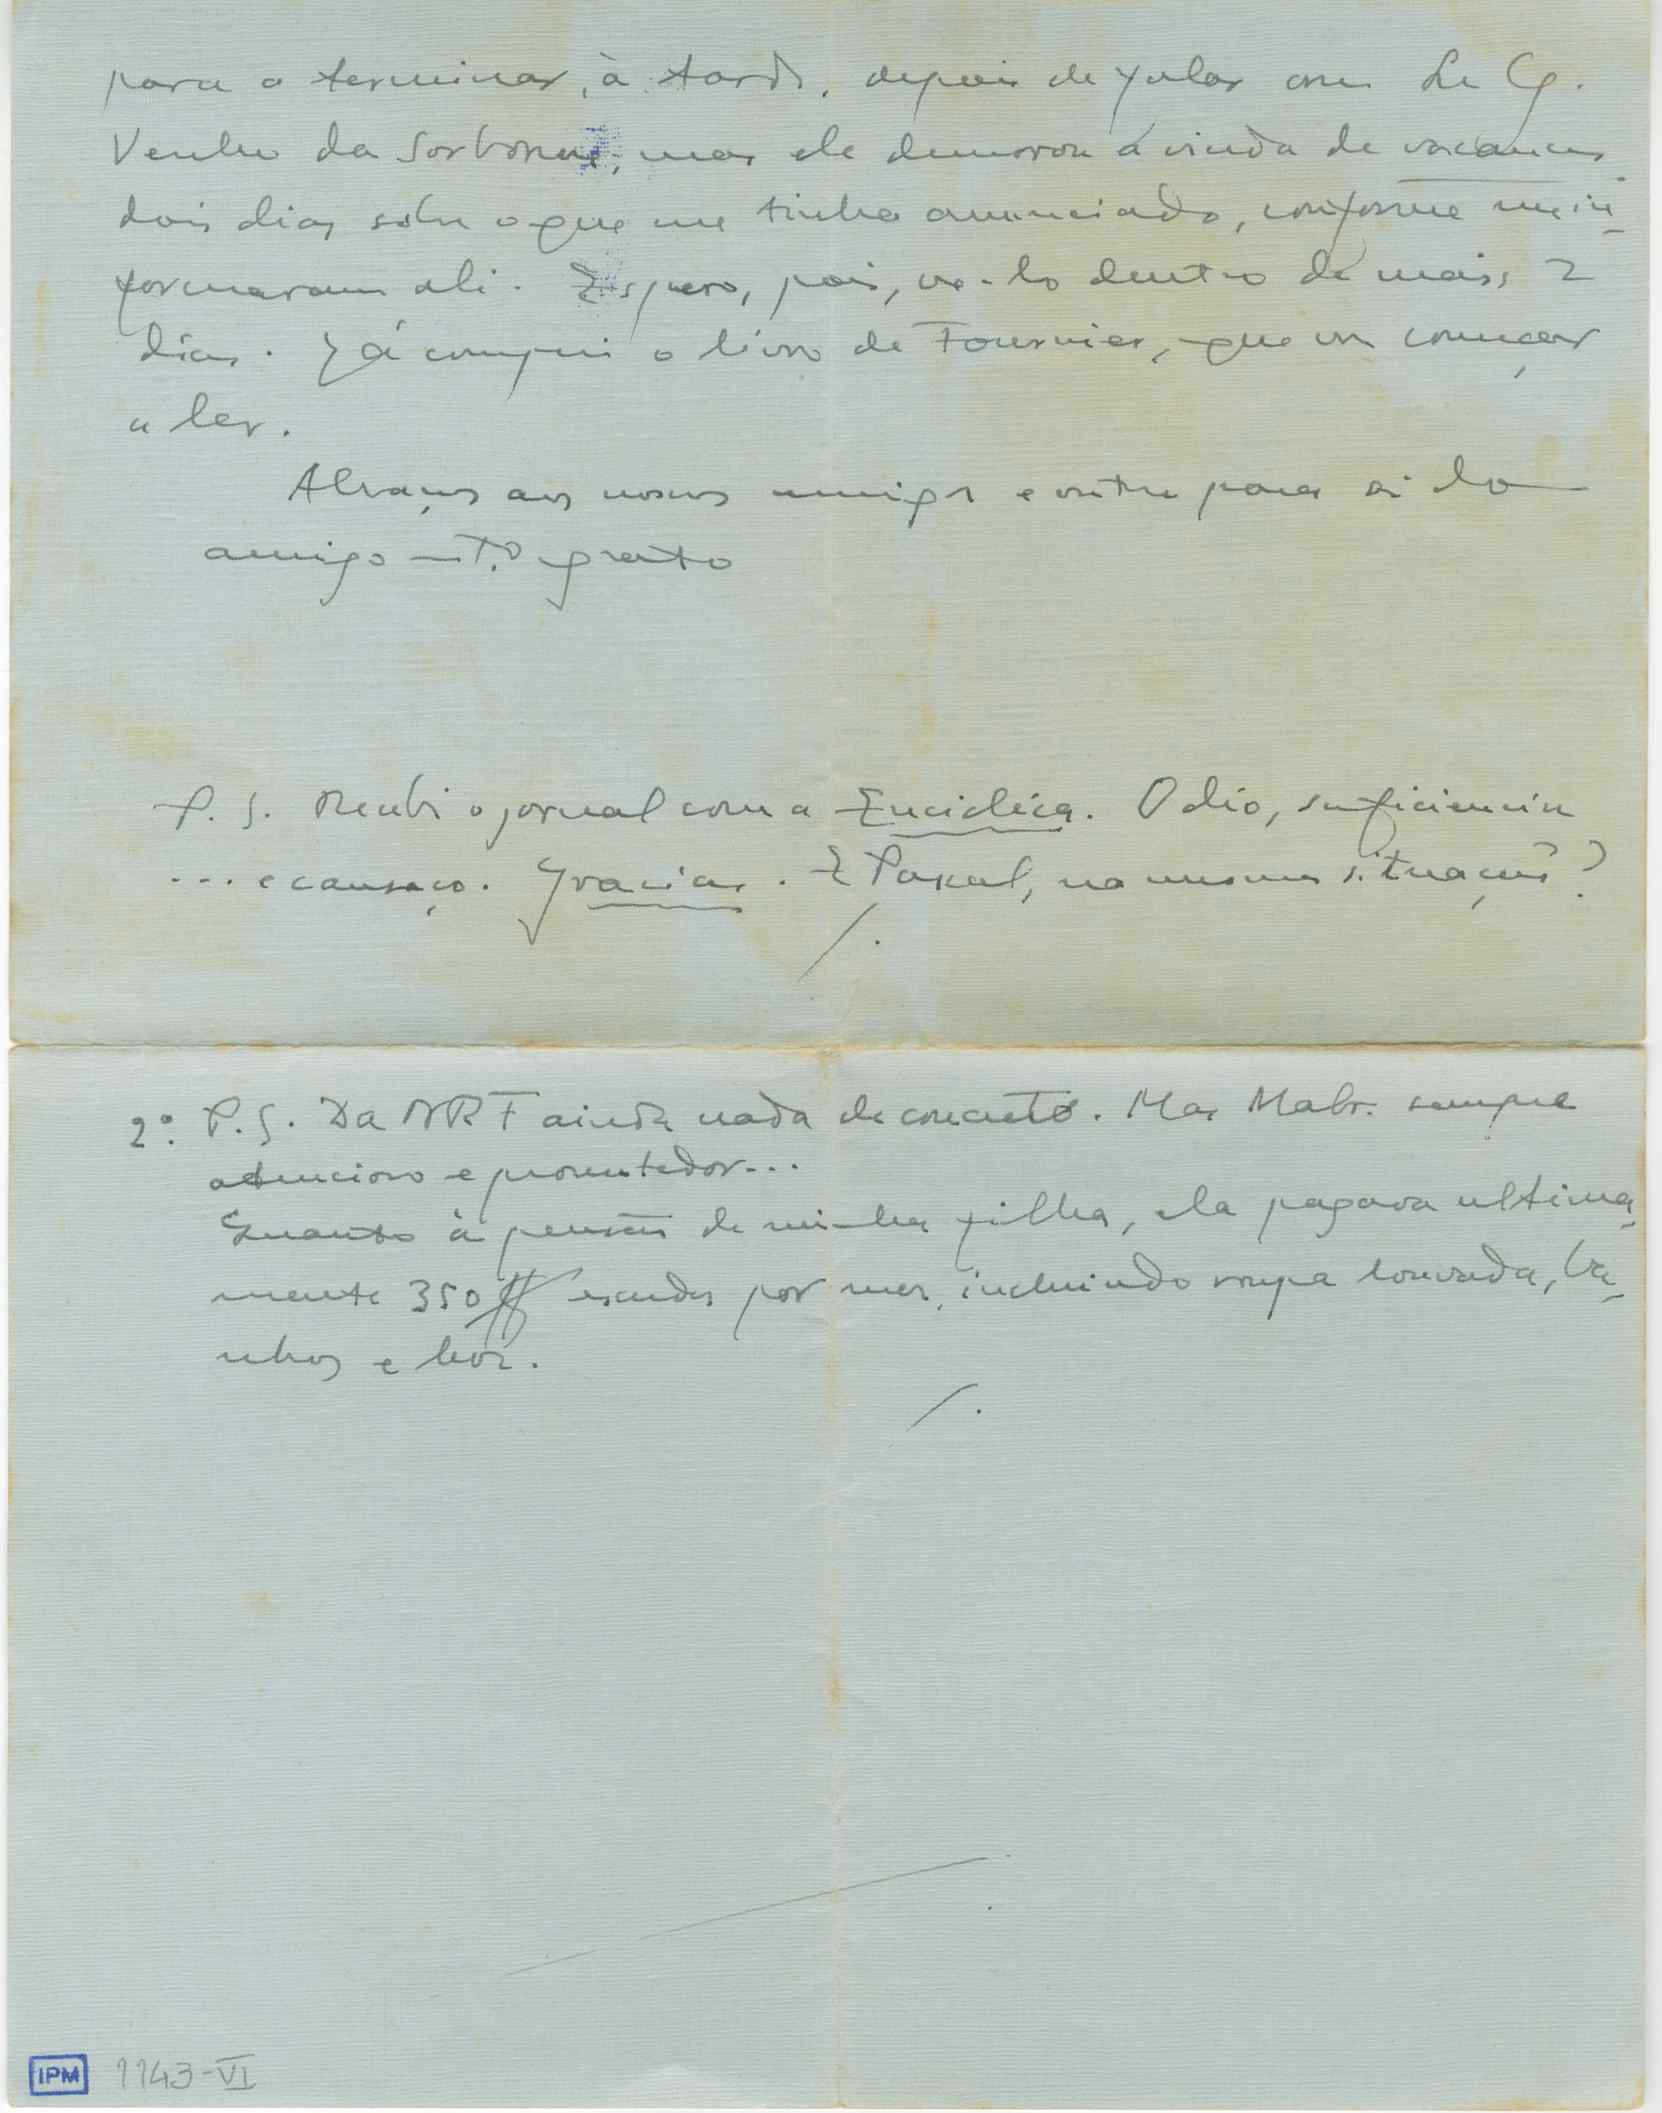 para o terminar, à tarde, depois de falar com Le G.
Venho da Sorbonne, mas ele demorou a vinda de vacances
dois dias sobre o que me tinha anunciado, conforme me in-
formaram ali. Espero, pois, ve-lo dentro de mais 2
dias. Já comprei o livro de Fournier, que vou começar
a ler.
Abraços aos nossos amigos e outro para si do
amigo mto grato
P.S. Recebi o jornal com a Enciclica. Odio, suficiencia
... e cansaço. Gracias. E Pascal, na mesma situação?
/.
2º P.S. Da NRF ainda nada de concreto. Mas Malr. sempre
atencioso e prometedor...
Quanto à pensão de minha filha, ela pagava ultima-
mente 350 escudos por mez, incluindo roupa lavada, ba-
nhos e luz.
/.
IPM 1143-VI